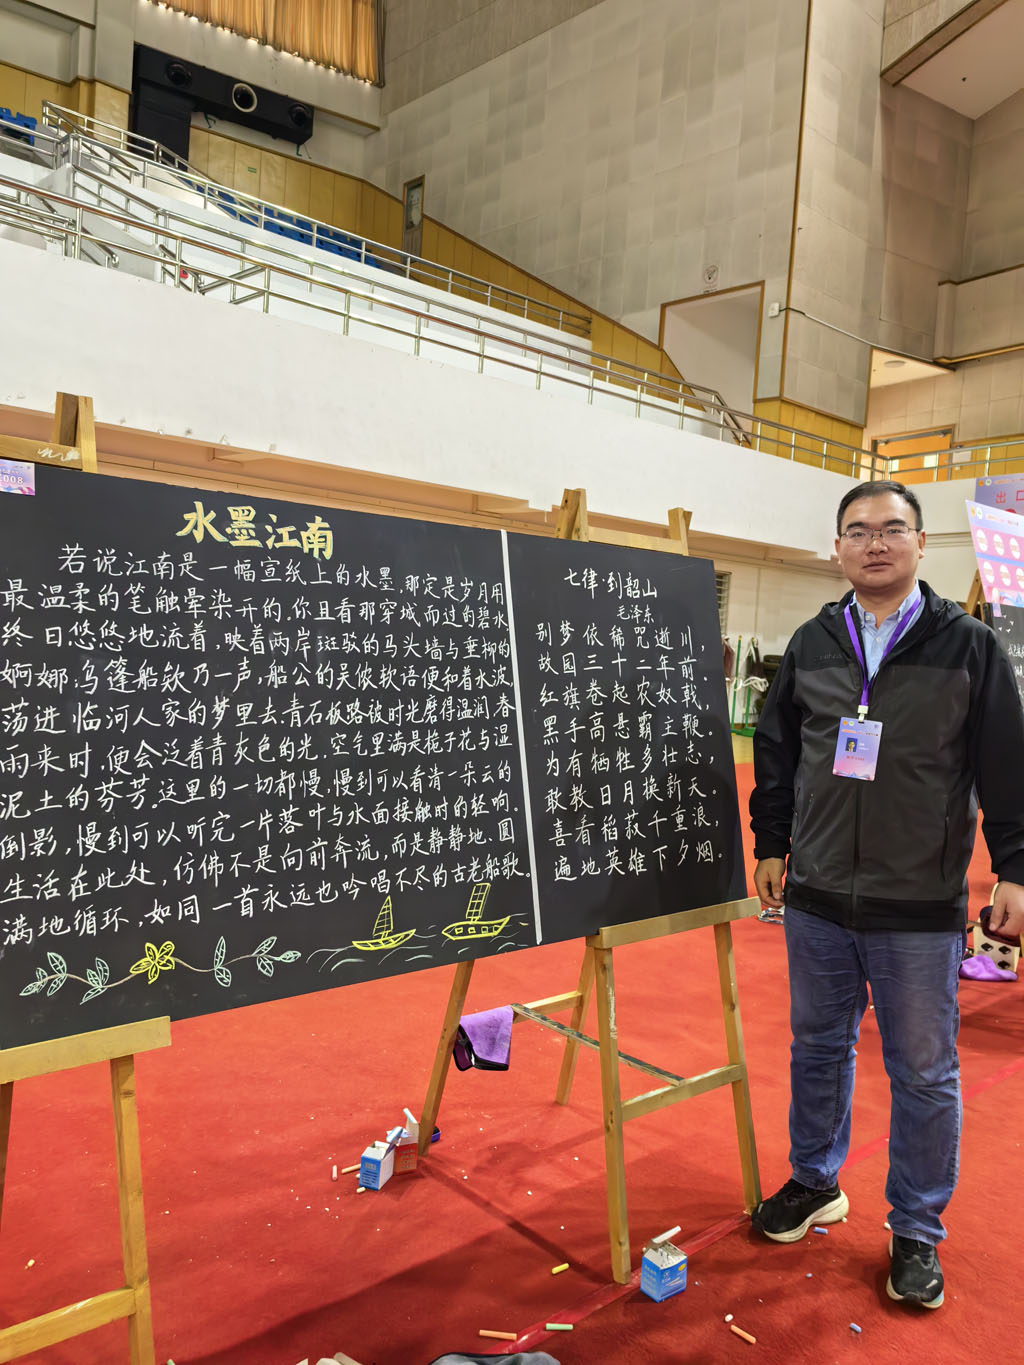 008
水墨江南
若说江南是一幅宣纸上的水墨,那定是岁月用
最温柔的笔触晕染开的。你且看那穿城而过的碧水
终日悠悠地流着,映着两岸斑驳的马头墙与垂柳的
婀娜;乌篷船欸乃一声,船公的吴侬软语便和着水波,
荡进临河人家的梦里去。青石板路被时光磨得温润,春
雨来时,便会泛着青灰色的光。空气里满是栀子花与湿
泥土的芬芳。这里的一切都慢,慢到可以看清一朵云的
倒影,慢到可以听完一片落叶与水面接触时的轻响。
生活在此处,仿佛不是向前奔流,而是静静地、圆
满地循环,如同一首永远也吟唱不尽的古老船歌。
七律·到韶山
毛泽东
别梦依稀咒逝川,
故园三十二年前。
红旗卷起农奴戟,
黑手高悬霸主鞭。
为有牺牲多壮志,
敢教日月换新天。
喜看稻菽千重浪,
遍地英雄下夕烟。
出口